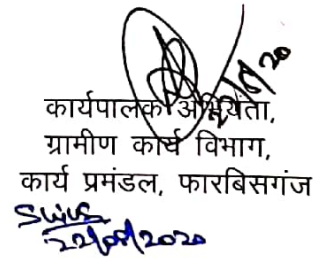 कार्यपालक अभियंता,
ग्रामीण कार्य विभाग,
कार्य प्रमंडल, फारबिसगंज
22/08/2020